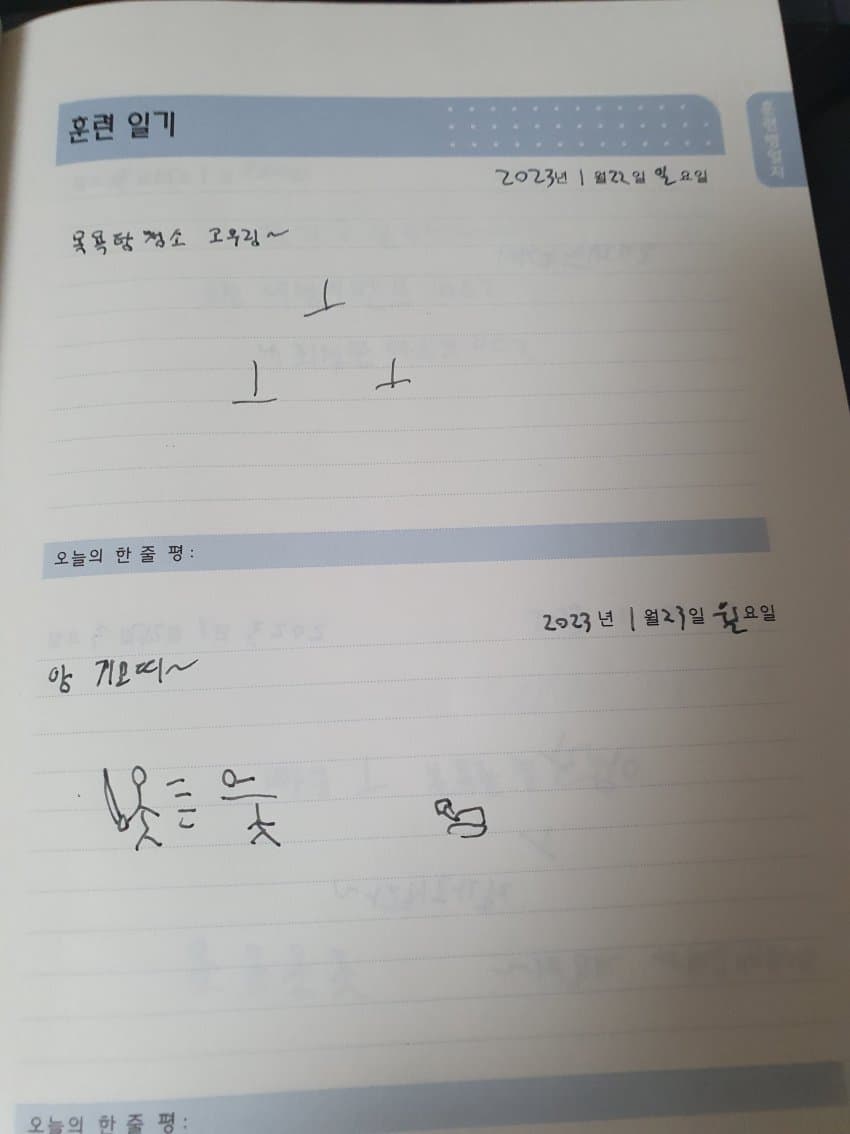 훈련 일기
훈련병일지
2023년 1월22일 일요일
목욕탕 청소 고우링~
ㅗ
ㅗ ㅗ
오늘의 한 줄 평:
2023년 1월23일 월요일
앙 기모띠~
오늘의 한 줄 평: